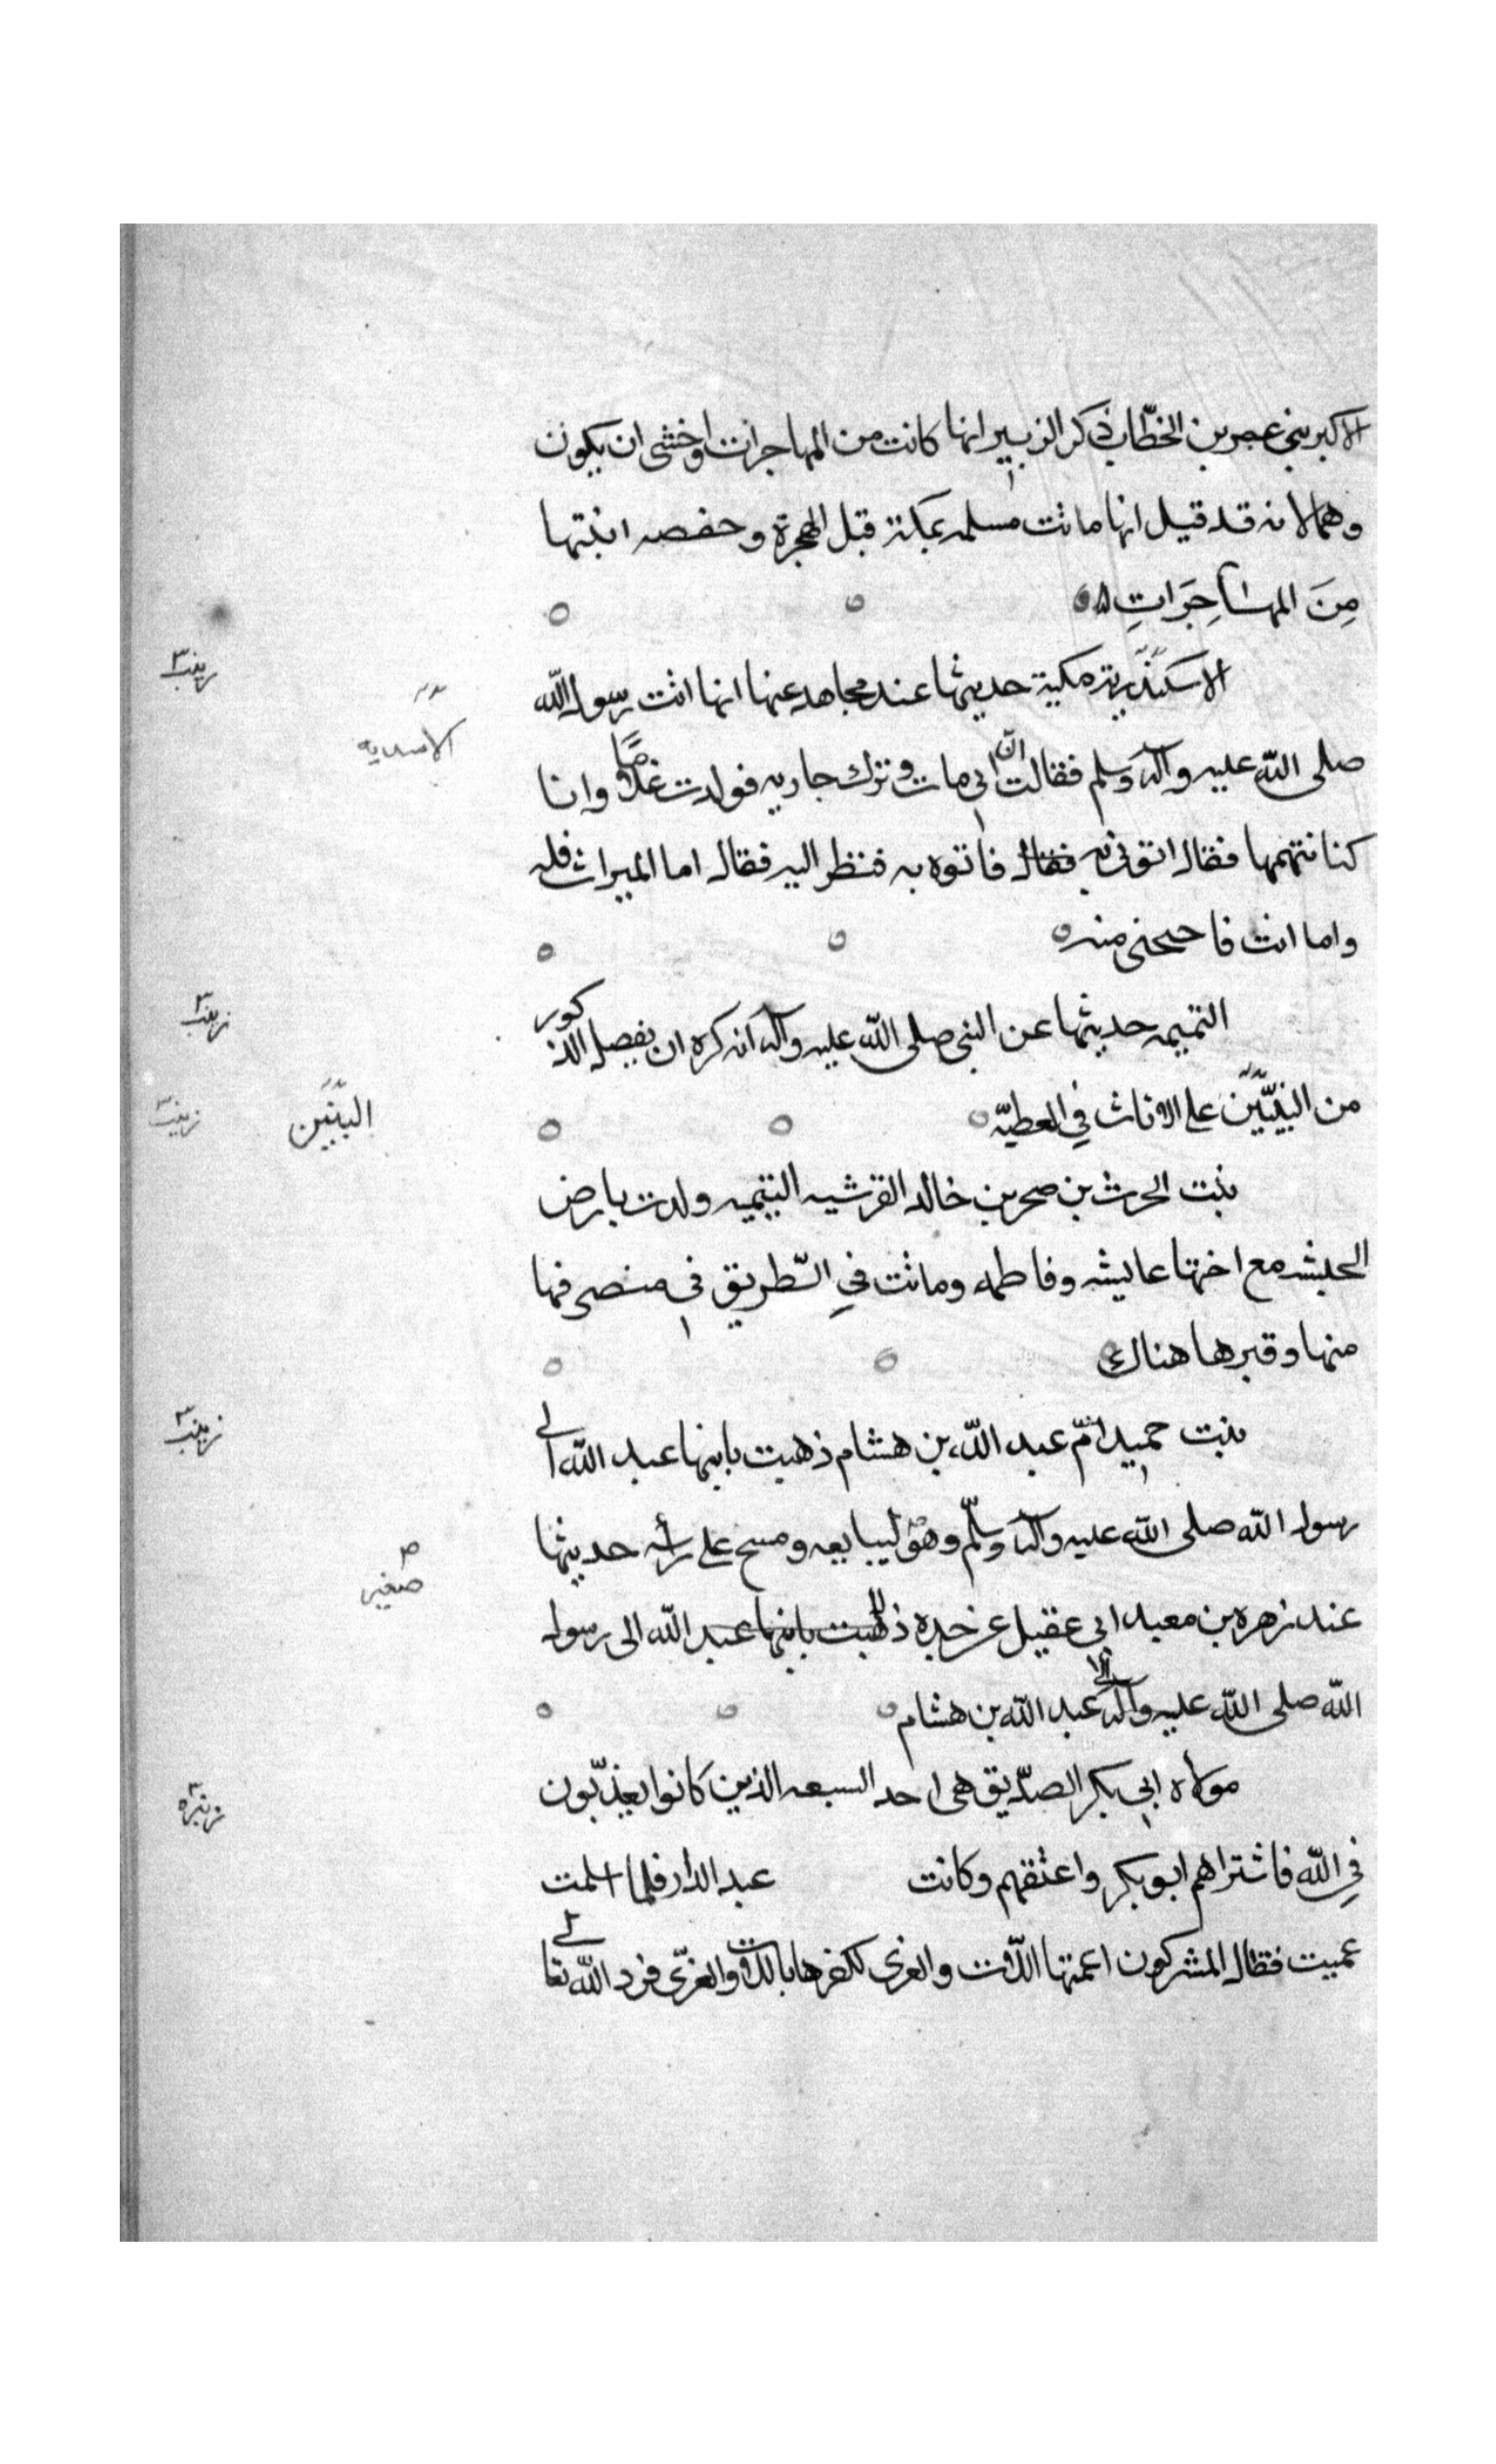 الاكبر بني عمر بن الخطاب ذكر الزبير انها كانت من المهاجرات واخشى ان يكون
وهما لانه قد قيل انها ماتت مسلمه بمكة قبل الهجرة وحفصه ابنتها
مِنَ المهاجِرَاتِ
زينب
الاسكندرية مكية حديثها عند مجاهد عنها انها اتت رسول الله
الاسديه
صلى الله عليه وآله وسلم فقالت ان ابي مات وترك جاريه فولدت غلامًا وانا
كنا نتهمها فقال اتوني به فقال فاتوه به فنظر اليه فقال اما الميراث فله
واما انت فاحتجبي منه
زينب
التميميه حديثها عن النبي صلى الله عليه وآله انه كره ان يفصل الذكور
من البنيّين على الاناث في العطيّه
البنين
زينب
بنت الحرث بن صخر بن خالد القرشيه التيميه ولدت بارض
الحبشه مع اختها عايشه وفاطمه وماتت في الطّريق في منصرفها
منها وقبرها هناك
زينب
بنت حميد امّ عبد الله بن هشام ذهبت بابنها عبد الله الى
رسول الله صلى الله عليه وآله وسلّم وهو ليبايعه ومسح على رأسه حديثها
صغير
عند زهره بن معبد ابي عقيل عن جده ذهبت بابنها عبد الله الى رسول
الله صلى الله عليه وآله عبد الله بن هشام
زنيره
مولاه ابي بكر الصدّيق هي احد السبعه الذين كانوا يعذّبون
في الله فاشتراهم ابو بكر واعتقهم وكانت عبد الدار فلما اسلمت
عميت فقال المشركون اعمتها اللّات والعزى لكفرها باللات والعزّى فرد الله تعالى